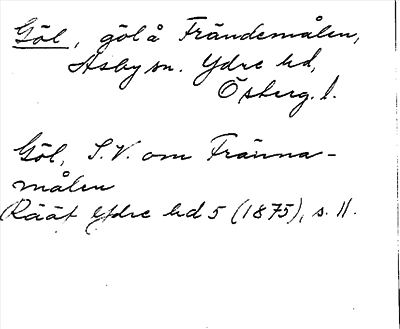 Göl, göl å Frändemålen,
Asby sn. Ydre hd,
Österg. l.
Göl, S.V. om Fränna-
målen
(Rääf Ydre hd 5 (1875), s. 11.